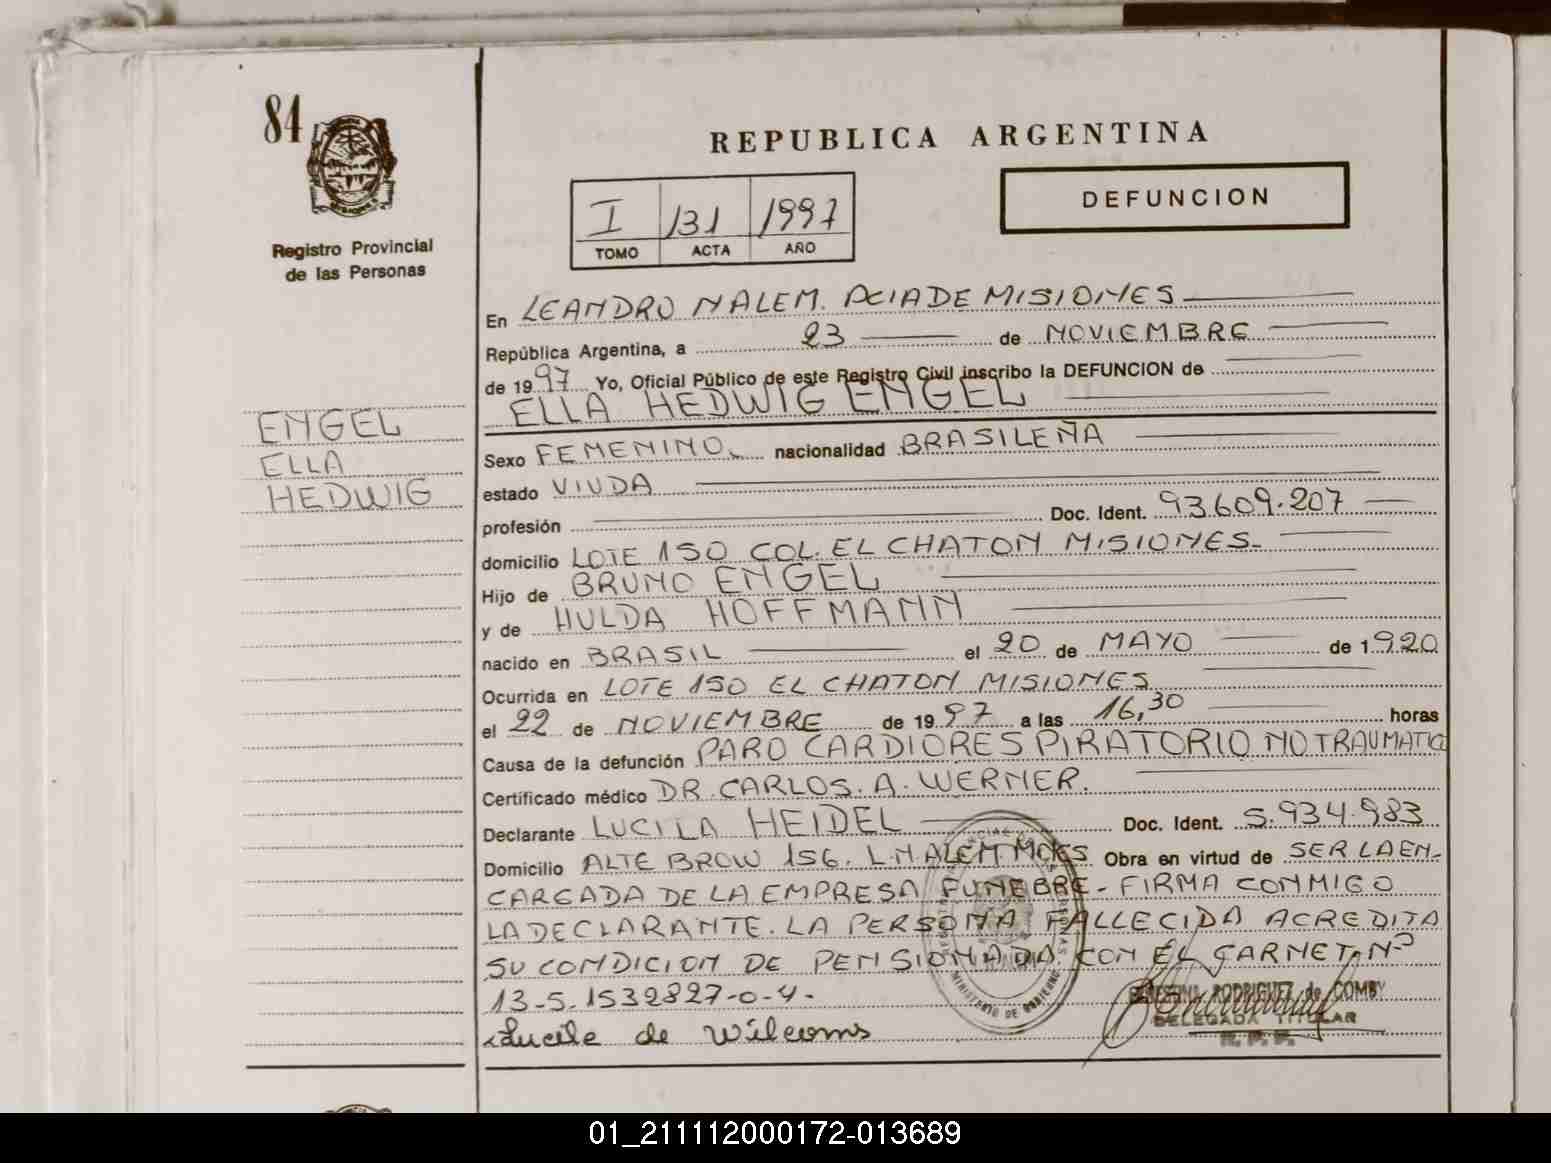 84
Registro Provincial
de las Personas
REPUBLICA ARGENTINA
I 131 1997
TOMO ACTA AÑO
DEFUNCION
En LEANDRO N ALEM. PCIA DE MISIONES
República Argentina, a 23 de NOVIEMBRE
de 1997 Yo, Oficial Público de este Registro Civil inscribo la DEFUNCION de
ELLA HEDWIG ENGEL
ENGEL
ELLA
HEDWIG
Sexo FEMENINO. nacionalidad BRASILEÑA
estado VIUDA
profesión Doc. Ident. 93.609.207
domicilio LOTE 150 COL. EL CHATON MISIONES.
Hijo de BRUNO ENGEL
y de HULDA HOFFMANN
nacido en BRASIL el 20 de MAYO de 1920
Ocurrida en LOTE 150 EL CHATON MISIONES
el 22 de NOVIEMBRE de 1997 a las 16,30 horas
Causa de la defunción PARO CARDIORESPIRATORIO NO TRAUMATICO
Certificado médico DR. CARLOS. A. WERNER.
Declarante LUCILA HEIDEL Doc. Ident. 5.934.983
Domicilio ALTE BROW 156. L.N.ALEM. MNES Obra en virtud de SER LA EN-
CARGADA DE LA EMPRESA FUNEBRE - FIRMA CONMIGO
LA DECLARANTE. LA PERSONA FALLECIDA ACREDITA
SU CONDICION DE PENSIONADA CON EL CARNET Nº
13-5.1532827-0-4.
MINISTERIO DE GOBIERNO
RODRIGUEZ de COMBY
DELEGADA TITULAR
R. P. P.
01_211112000172-013689